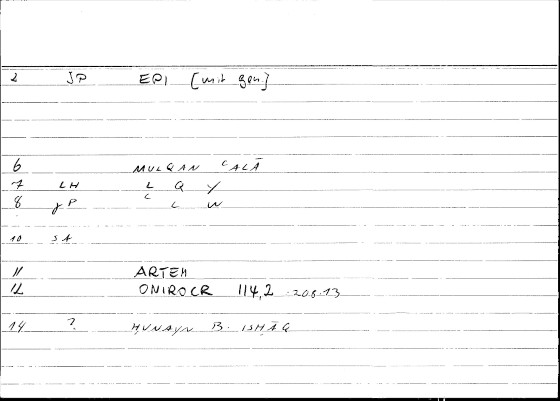 2 JP EPI [mit gen]
6 MULQAN ʿALĀ
7 LH L Q Y
8 JP ʿ L W
10 SA
11 ARTEM
12 ONIROCR 114,2 208.13
14 ? ḤUNAYN B. ISḤĀQ